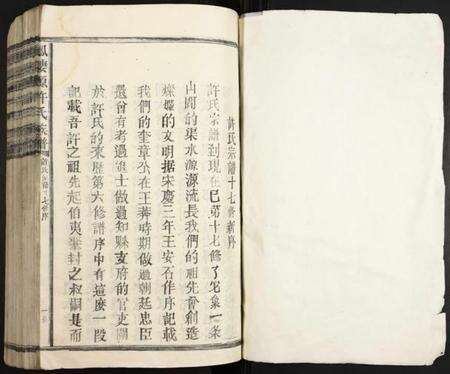 許氏宗譜十七修新序
許氏宗譜到現在已第十七修了它象一条
山間的渠水源源流長我們的祖先會創造
燦爛的文明据宋慶三年王安石作序記載
我們的奎章公在王莽時期做過朝廷忠臣
還曾有考過進士做過知縣支府的官吏關
於許氏的來歷第六修譜序中有這麼一段
記載吾許之祖先起伯夷封之叔嗣是而
許氏宗譜
十七修序